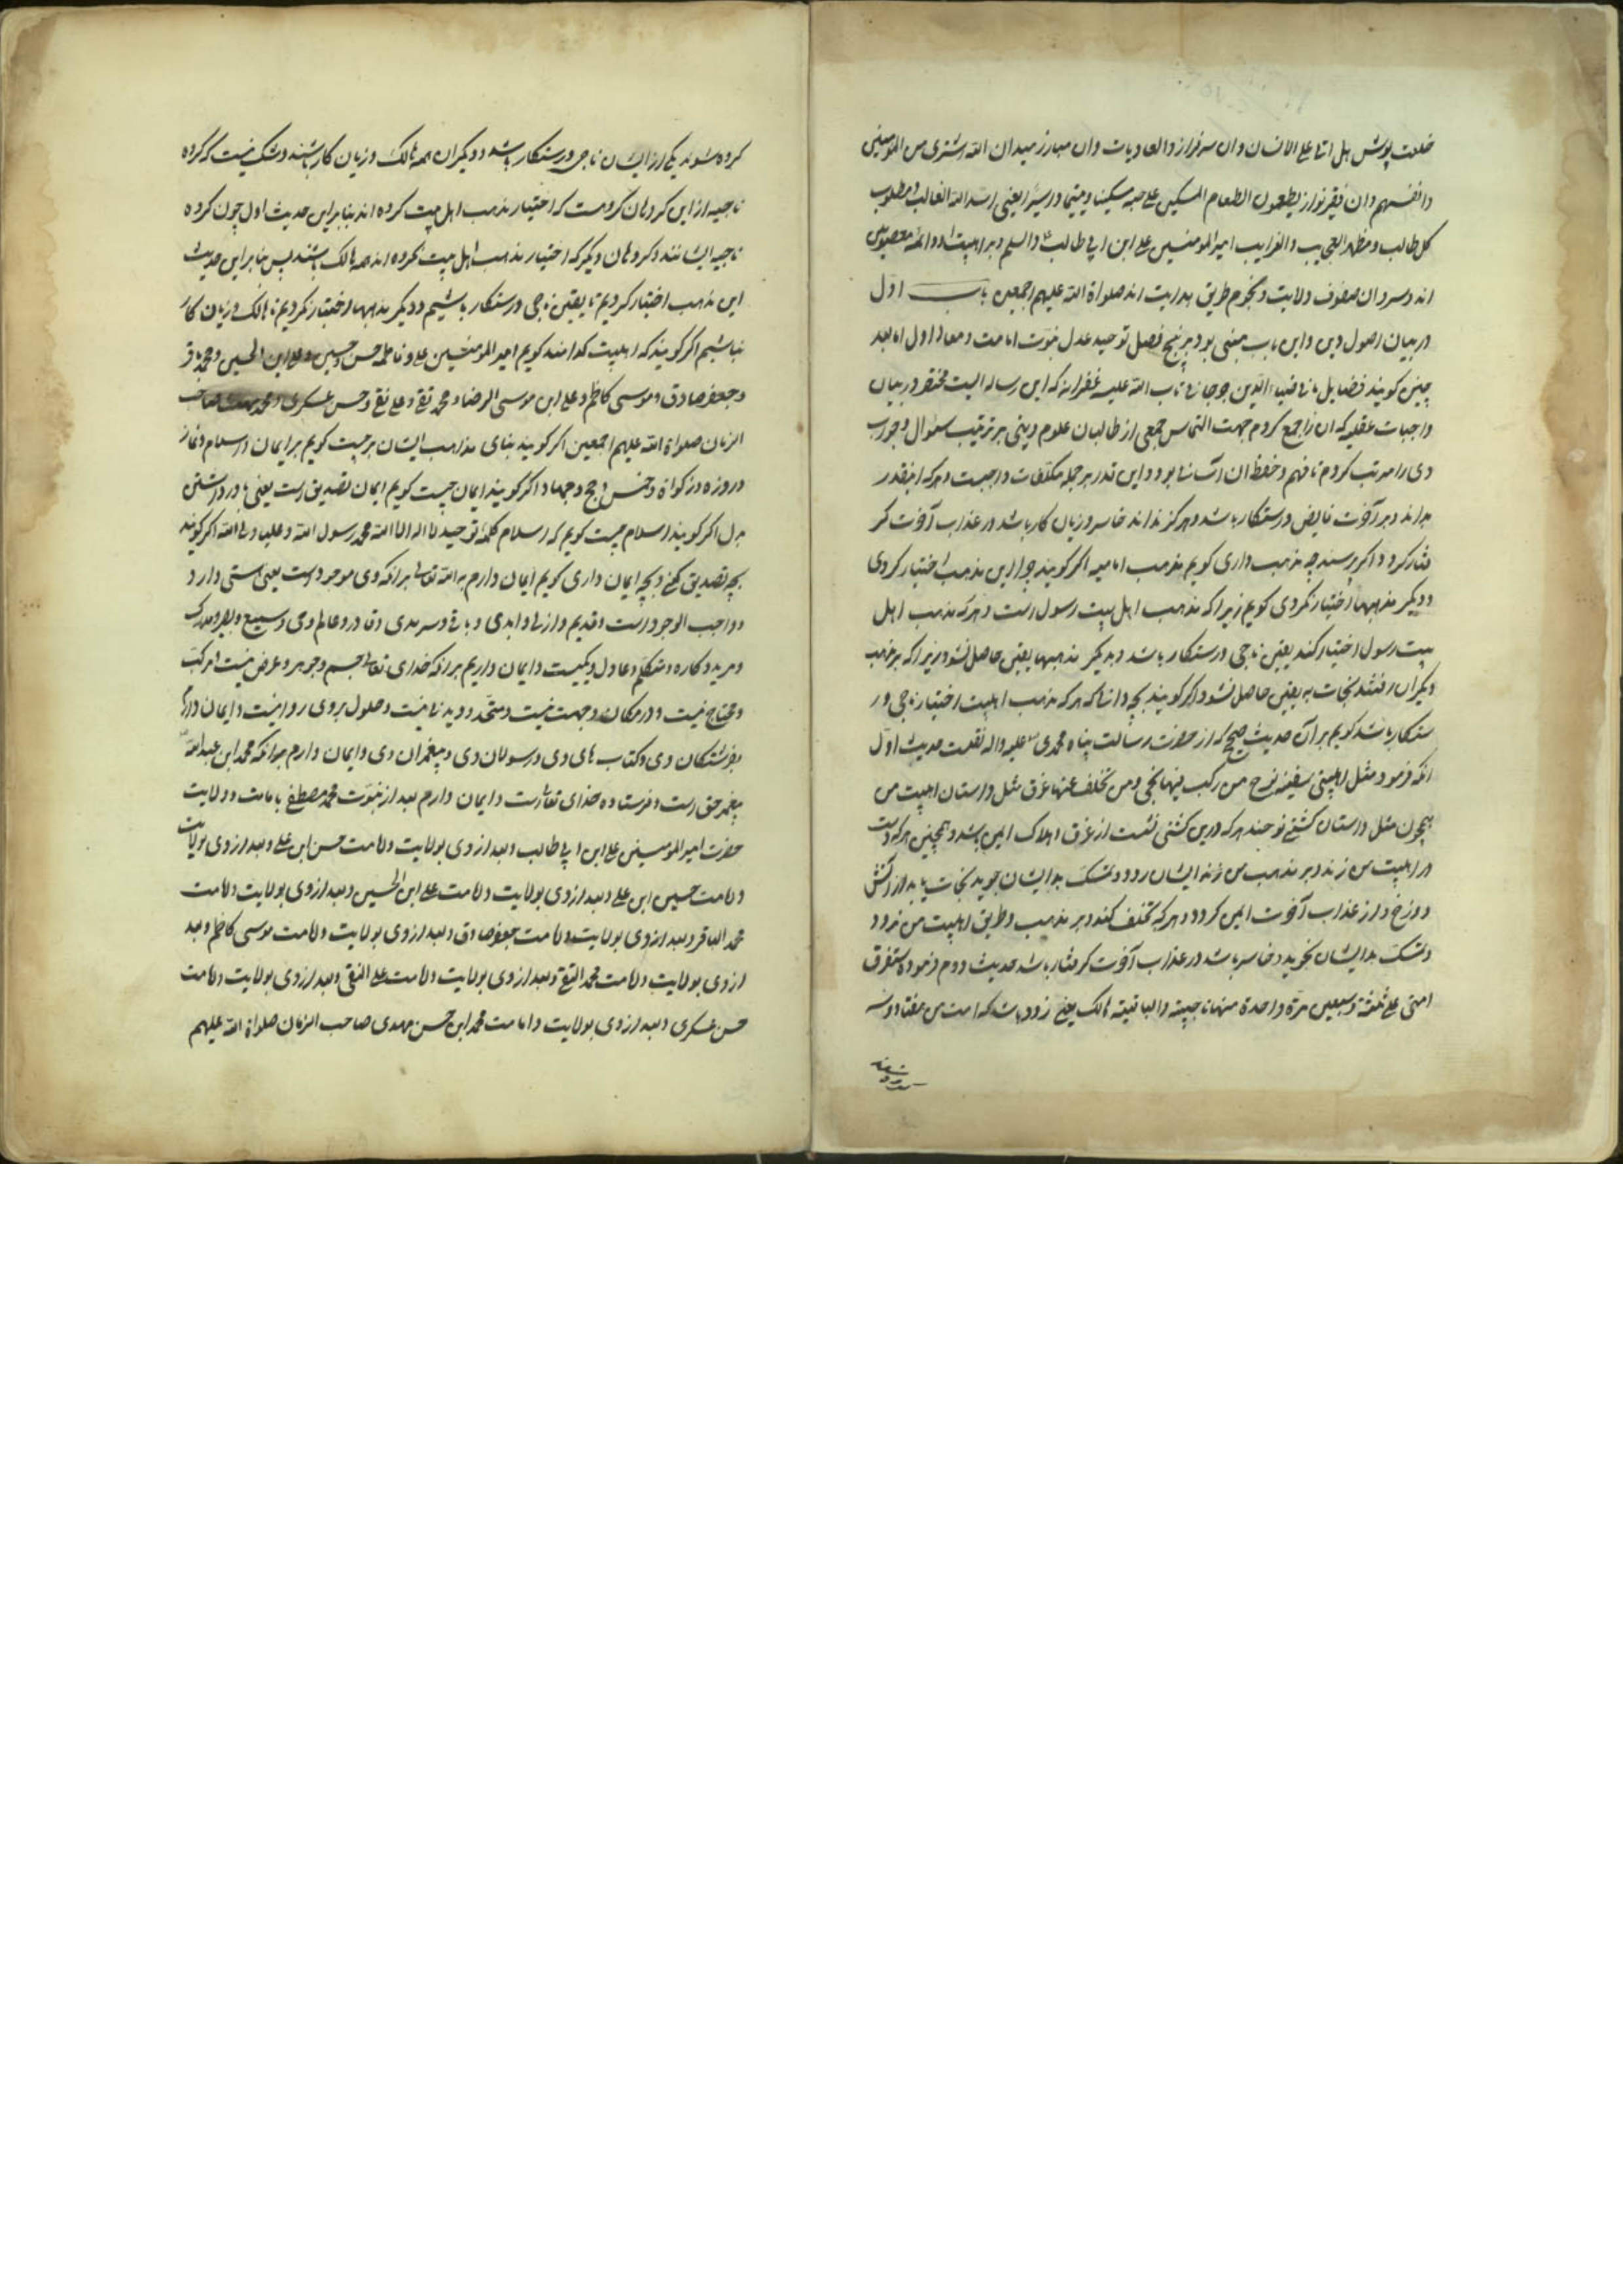 خلعت پوش هل اتا علی الانسان وان سرفراز والعادیات وان مبارز میدان ان الله اشتری من المومنین
وانفسهم وان فقیر نواز یطعمون الطعام المسکین علی حبه مسکینا ویتیما واسیرا یعنی اسد الله الغالب ومطلوب
کل طالب ومظهر العجایب والغرایب امیر المومنین علی ابن ابی طالب والسلم وبر اهلبیت او وائمه معصومین
اند وسروان صفوف ولایت ونجوم طریق هدایت اند صلواة الله علیهم اجمعین باب اول
در بیان اصول دین واین باب مبنی بود بر پنج فصل توحید عدل نبوت امامت ومعاد اول اما بعد
چنین کویند فضایل ضیاء الدین جرجانی تاب الله علیه غفرانه که این رساله ایست مختصر در بیان
واجبات عقلیه که ان را جمع کردم جهت التماس جمعی از طالبان علوم دینی بر ترتیب سئوال وجواب
وی را مرتب کردم تا فهم وحفظ ان اسان بود واین قدر بر جمله مکلفات واجبست وهرکه اینقدر
بداند در آخرت فایض ورستکار باشد وهرکز نداند خاسر وزیان کار باشد در عذاب آخرت کر
فتار کردد اکر پرسند چه مذهب داری کویم مذهب امامیه اکر کویند چرا این مذهب اختیار کردی
ودیکر مذهبها اختیار نکردی کویم زیرا که مذهب اهل بیت رسول است وهرکه مذهب اهل
بیت رسول اختیار کند یقین ناجی ورستکار باشد وبدیکر مذهبها یقین حاصل نشود زیرا که بر مذهب
دیکران رفتند نجات به یقین حاصل نشود اکر کویند بچه دانی که هرکه مذهب اهلبیت اختیار ناجی ور
ستکار باشد کویم بر آن حدیث صحیح که از حضرت رسالت پناه محمدی علیه واله نقلست حدیث اول
انکه فرمود مثل اهلبیتی سفینه نوح من رکب فیها نجی ومن تخلف عنها غرق مثل وداستان اهلبیت من
همچون مثل وداستان کشتی نوحند هرکه درین کشتی نشست از غرق وهلاک ایمن باشد وهمچنین هرکه دست
در اهلبیت من زند وبر مذهب من زند ایشان رود وتمسک بدایشان جوید نجات یابد از اتش
دوزخ واز عذاب آخرت ایمن کردد وهرکه تخلف کند وبر مذهب وطریق اهلبیت من نرود
وتمسک بدایشان نجوید وخاسر باشد در عذاب آخرت کرفتار باشد حدیث دوم فرموده ستفرق
امتی علی ثلثة وسبعین فرقة واحدة منها ناجیة والباقیة هالک یعنی زود باشد که امت من هفتاد وسه
کروه شوند یکی از ایشان ناجی ورستکار باشد ودیکران همه هالک وزیان کار باشند وشک نیست که کروه
ناجیه از این کروهان کروهست که اختیار مذهب اهل بیت کرده اند بنابراین حدیث اول چون کروه
ناجیه ایشانند وکروهان دیکر که اختیار مذهب اهل بیت نکرده اند همه هالک باشند پس بنابر این حدیث
این مذهب اختیار کردیم تا یقین ناجی ورستکار باشیم ودیکر مذهبها اختیار نکردیم تا هالک وزیان کار
نباشیم اکر کویند که اهلبیت کدامند کویم امیر المومنین علی وفاطمه حسن وحسین وعلی ابن الحسین ومحمد باقر
وجعفر صادق وموسی کاظم وعلی ابن موسی الرضا ومحمد تقی وعلی نقی وحسن عسکری ومحمد مهدی صاحب
الزمان صلواة الله علیهم اجمعین اکر کویند بنای مذهب ایشان بر چیست کویم بر ایمان واسلام ونماز
وروزه وزکواة وخمس وحج وجهاد اکر کویند ایمان چیست کویم ایمان تصدیق است یعنی باور داشتن
بدل اکر کویند اسلام چیست کویم که اسلام کلمه توحید لا اله الا الله محمد رسول الله وعلیا ولی الله اکر کویند
بچه تصدیق کنی وبچه ایمان داری کویم ایمان دارم به الله تعالی برانکه وی موجود است یعنی هستی دارد
وواجب الوجود است وقدیم وازلی وابدی وباقی وسرمدی وقادر وعالم وحی وسمیع وبصیر ومدرک
ومرید وکاره ومتکلم وعادل وحکیمست وایمان داریم برانکه خدای تعالی جسم وجوهر وعرض نیست ومرکب
ومحتاج نیست ودر مکان وجهت نیست ومتحد ودیدنی نیست وحلول بروی روا نیست وایمان دارم
بفرشتکان وی وکتاب های وی ورسولان وی وپیغمبران وی وایمان دارم برانکه محمد ابن عبدالله
پیغمبر حق است وفرستاده خدای تعالی است وایمان دارم بعد از نبوت محمد مصطفی بامامت وولایت
حضرت امیر المومنین علی ابن ابی طالب وبعد از وی بولایت وامامت حسن ابن علی وبعد از وی بولایت
وامامت حسین ابن علی وبعد از وی بولایت وامامت علی ابن الحسین وبعد از وی بولایت وامامت
محمد الباقر وبعد از وی بولایت وامامت جعفر صادق وبعد از وی بولایت وامامت موسی کاظم وبعد
از وی بولایت وامامت محمد التقی وبعد از وی بولایت وامامت علی النقی وبعد از وی بولایت وامامت
حسن عسکری وبعد از وی بولایت وامامت محمد ابن حسن مهدی صاحب الزمان صلواة الله علیهم